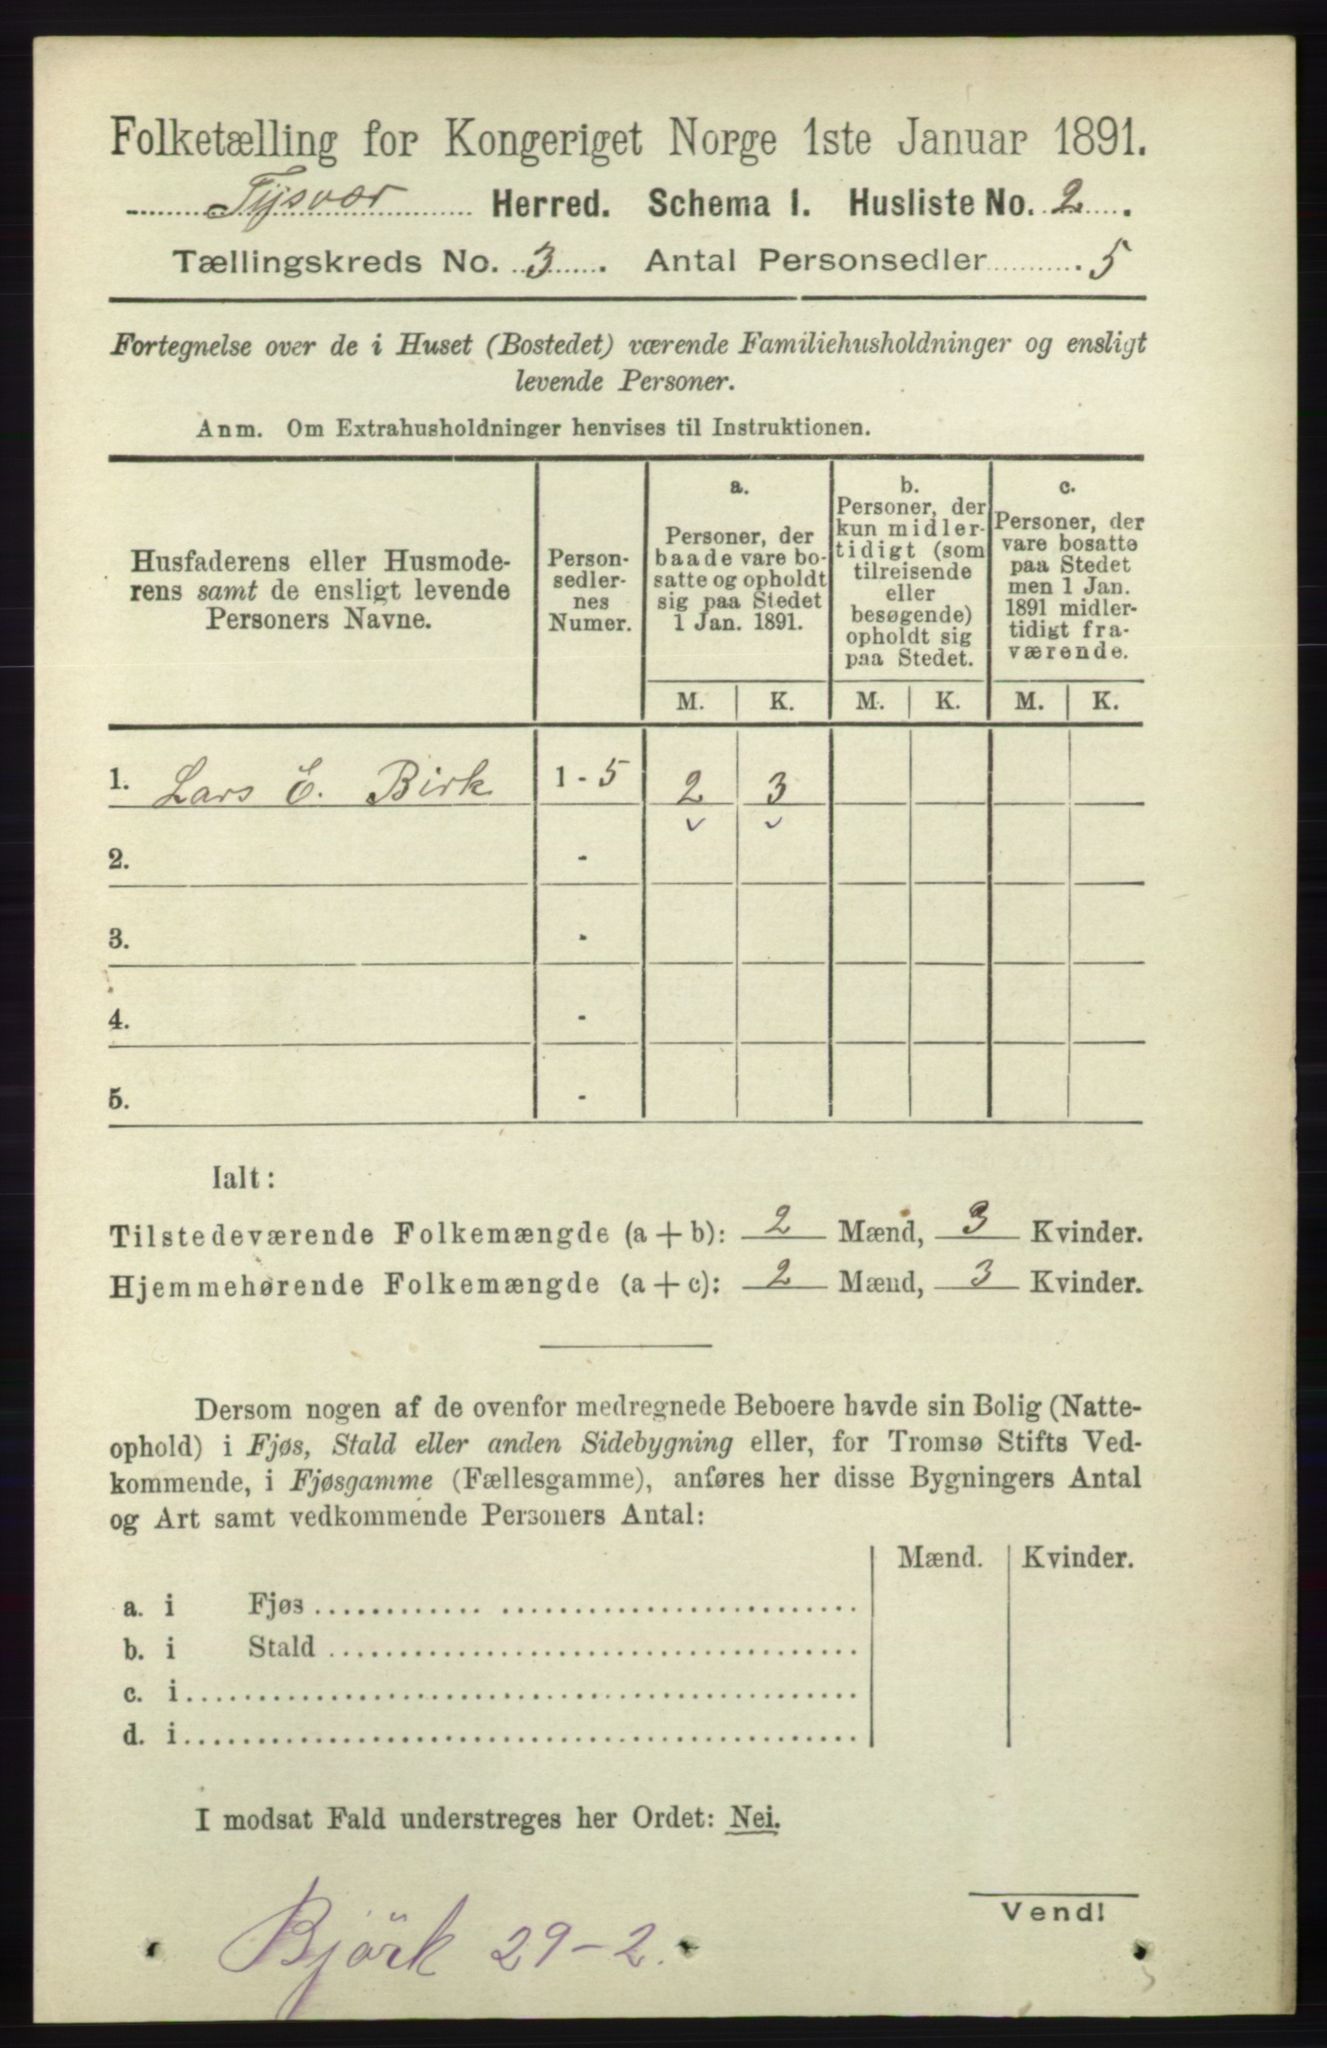 Folketælling for Kongeriget Norge 1ste Januar 1891.
Tysvær Herred. Schema 1. Husliste No. 2.
Tællingskreds No. 3. Antal Personsedler 5
Fortegnelse over de i Huset (Bostedet) værende Familiehusholdninger og ensligt
levende Personer.
Anm. Om Extrahusholdninger henvises til Instruktionen.
Husfaderens eller Husmode-
rens samt de ensligt levende
Personers Navne.
Person-
sedler-
nes
Numer.
a.
Personer, der
baade vare bo-
satte og opholdt
sig paa Stedet
1 Jan. 1891.
b.
Personer, der
kun midler-
tidigt (som
tilreisende
eller
besøgende)
opholdt sig
paa Stedet.
c.
Personer, der
vare bosatte
paa Stedet
men 1 Jan.
1891 midler-
tidigt fra-
værende.
M. K. M. K. M. K.
1. Lars E. Birk 1 - 5 2 3
2. -
3. -
4. -
5. -
Ialt:
Tilstedeværende Folkemængde (a + b): 2 Mænd, 3 Kvinder.
Hjemmehørende Folkemængde (a + c): 2 Mænd, 3 Kvinder.
Dersom nogen af de ovenfor medregnede Beboere havde sin Bolig (Natte-
ophold) i Fjøs, Stald eller anden Sidebygning eller, for Tromsø Stifts Ved-
kommende, i Fjøsgamme (Fællesgamme), anføres her disse Bygningers Antal
og Art samt vedkommende Personers Antal:
Mænd. Kvinder.
a. i Fjøs
b. i Stald
c. i
d. i
I modsat Fald understreges her Ordet: Nei.
Vend!
Björk 29-2.